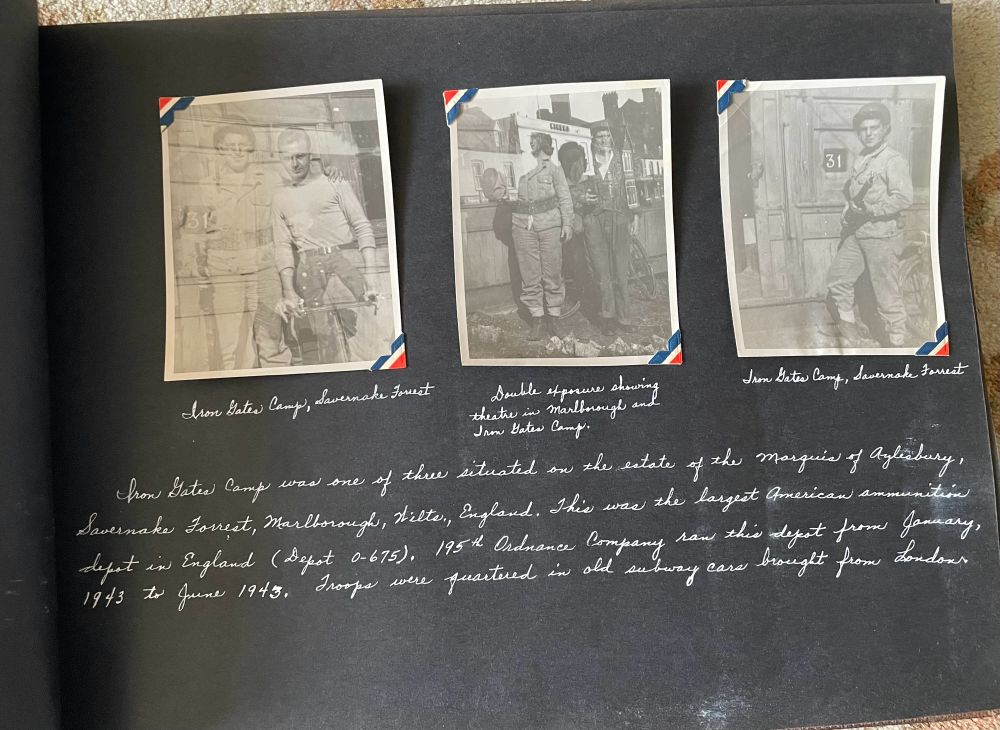 31
CINEMA
31
Iron Gates Camp, Savernake Forrest
Double exposure showing
theatre in Marlborough and
Iron Gates Camp.
Iron Gates Camp, Savernake Forrest
Iron Gates Camp was one of three situated on the estate of the Marquis of Aylesbury,
Savernake Forrest, Marlborough, Wilts., England. This was the largest American ammunition
depot in England (Depot O-675). 195th Ordnance Company ran this depot from January,
1943 to June 1943. Troops were quartered in old subway cars brought from London.